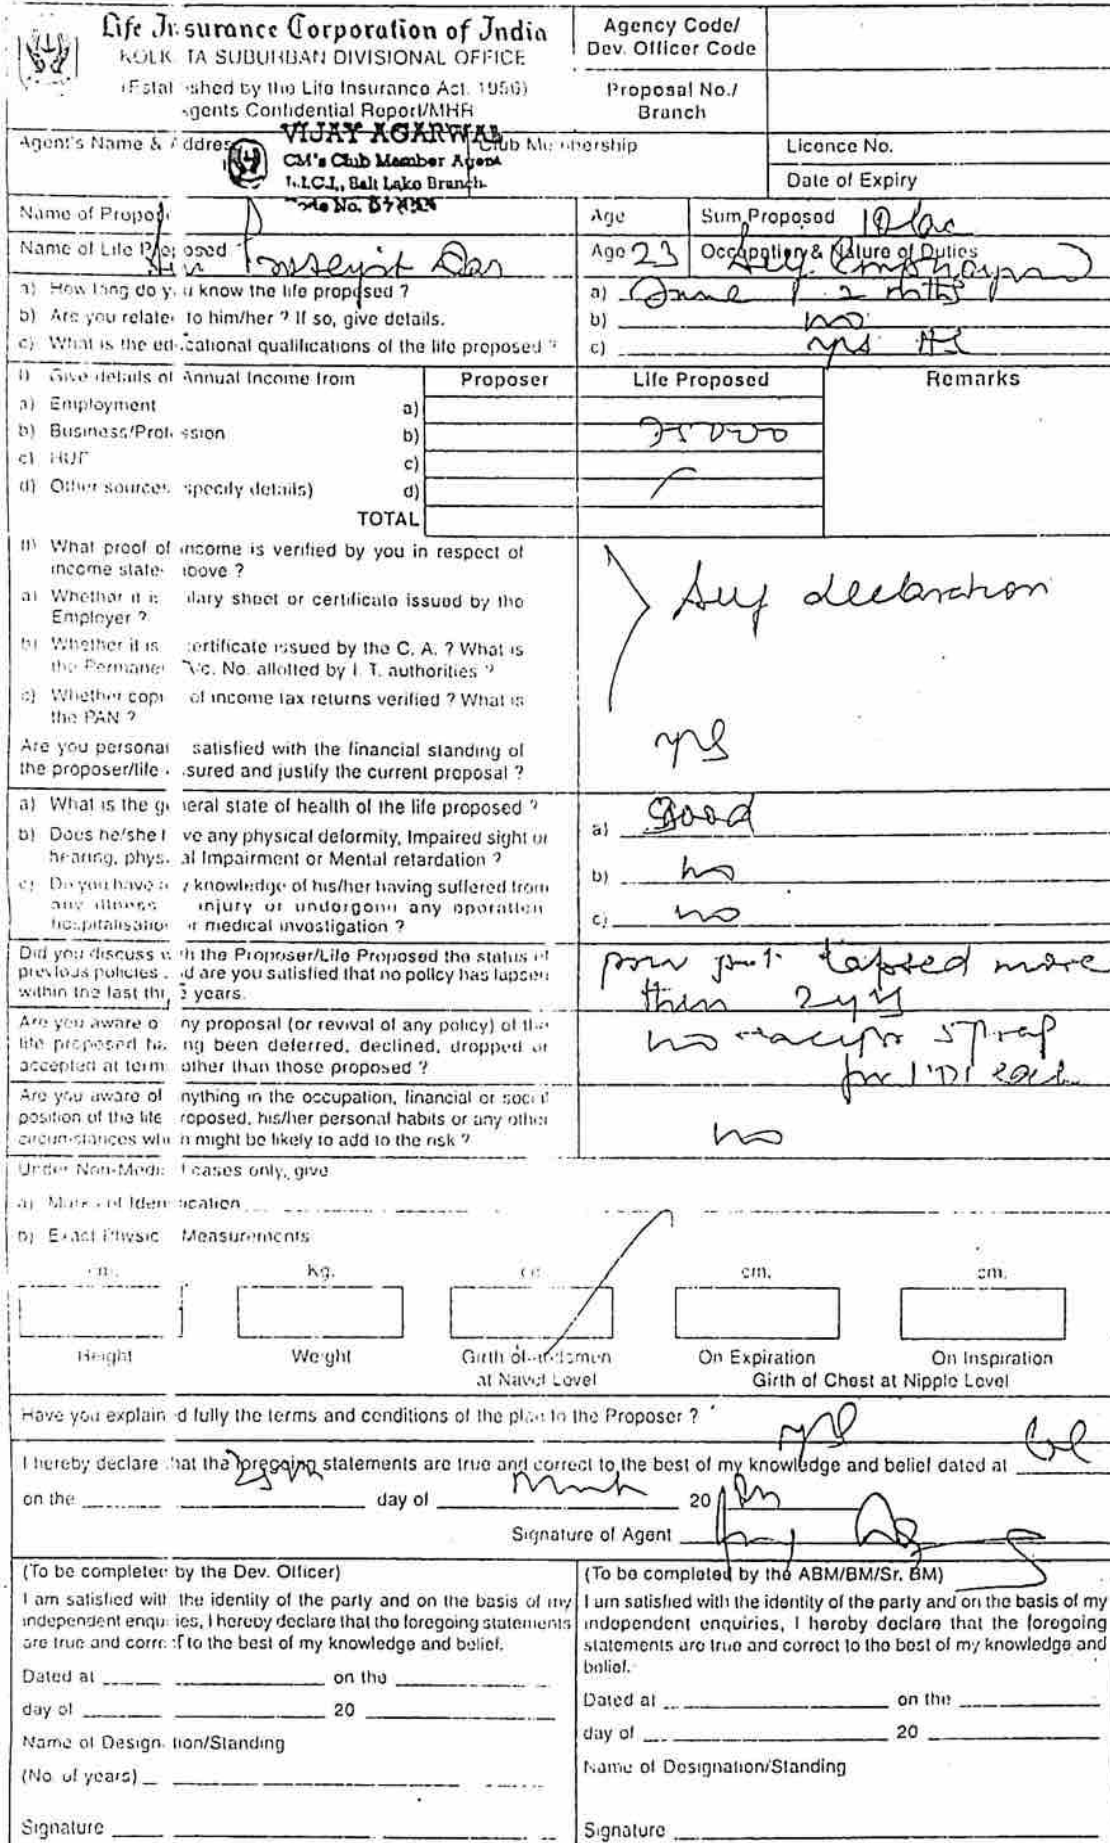 Life Insurance Corporation of India
KOLK TA SUBURBAN DIVISIONAL OFFICE
(Estal ished by the Life Insurance Act. 1956)
gents Confidential Report/MHR
Agency Code/
Dev. Officer Code
Proposal No./
Branch
Agent's Name & Addres
VIJAY AGARWAL
CM's Club Member Agent
L.I.C.I., Salt Lake Branch
Club Membership
Licence No.
Date of Expiry
Name of Propos
Age
Sum Proposed
Name of Life Proposed
Das
Age 23
Occupation & Nature of Duties
a) How long do you know the life proposed ?
a)
b) Are you related to him/her ? If so, give details.
b) no
c) What is the educational qualifications of the life proposed ?
c)
I) Give details of Annual Income from
Proposer
Life Proposed
Remarks
a) Employment a)
b) Business/Profession b)
c) HUF c)
d) Other sources specify details) d)
TOTAL
II) What proof of income is verified by you in respect of
income state above ?
a) Whether it is alary sheet or certificate issued by the
Employer ?
b) Whether it is certificate issued by the C. A. ? What is
the Permanent A/c. No. allotted by I. T. authorities ?
c) Whether copi of income tax returns verified ? What is
the PAN ?
Self declaration
Are you personal satisfied with the financial standing of
the proposer/life assured and justify the current proposal ?
yes
a) What is the general state of health of the life proposed ?
a) Good
b) Does he/she have any physical deformity, Impaired sight or
hearing, physical Impairment or Mental retardation ?
b) no
c) Do you have any knowledge of his/her having suffered from
any illness injury or undergone any operation
hospitalisation or medical investigation ?
c) no
Did you discuss with the Proposer/Life Proposed the status of
previous policies and are you satisfied that no policy has lapsed
within the last three years.
lapsed more
than 2 yrs
Are you aware of any proposal (or revival of any policy) of the
life proposed having been deferred, declined, dropped or
accepted at terms other than those proposed ?
no
Are you aware of anything in the occupation, financial or social
position of the life proposed, his/her personal habits or any other
circumstances which might be likely to add to the risk ?
no
Under Non-Medical cases only, give
a) Marks of Identification
b) Exact Physical Measurements
cm.
Kg.
cm.
cm.
cm.
Height
Weight
Girth of Abdomen
at Navel Level
On Expiration
On Inspiration
Girth of Chest at Nipple Level
Have you explained fully the terms and conditions of the plan to the Proposer ?
yes
I hereby declare that the foregoing statements are true and correct to the best of my knowledge and belief dated at
on the day of 20
Signature of Agent
(To be completed by the Dev. Officer)
I am satisfied with the identity of the party and on the basis of my
independent enquiries, I hereby declare that the foregoing statements
are true and correct to the best of my knowledge and belief.
Dated at on the
day of 20
Name of Designation/Standing
(No. of years)
Signature
(To be completed by the ABM/BM/Sr. BM)
I am satisfied with the identity of the party and on the basis of my
independent enquiries, I hereby declare that the foregoing
statements are true and correct to the best of my knowledge and
belief.
Dated at on the
day of 20
Name of Designation/Standing
Signature